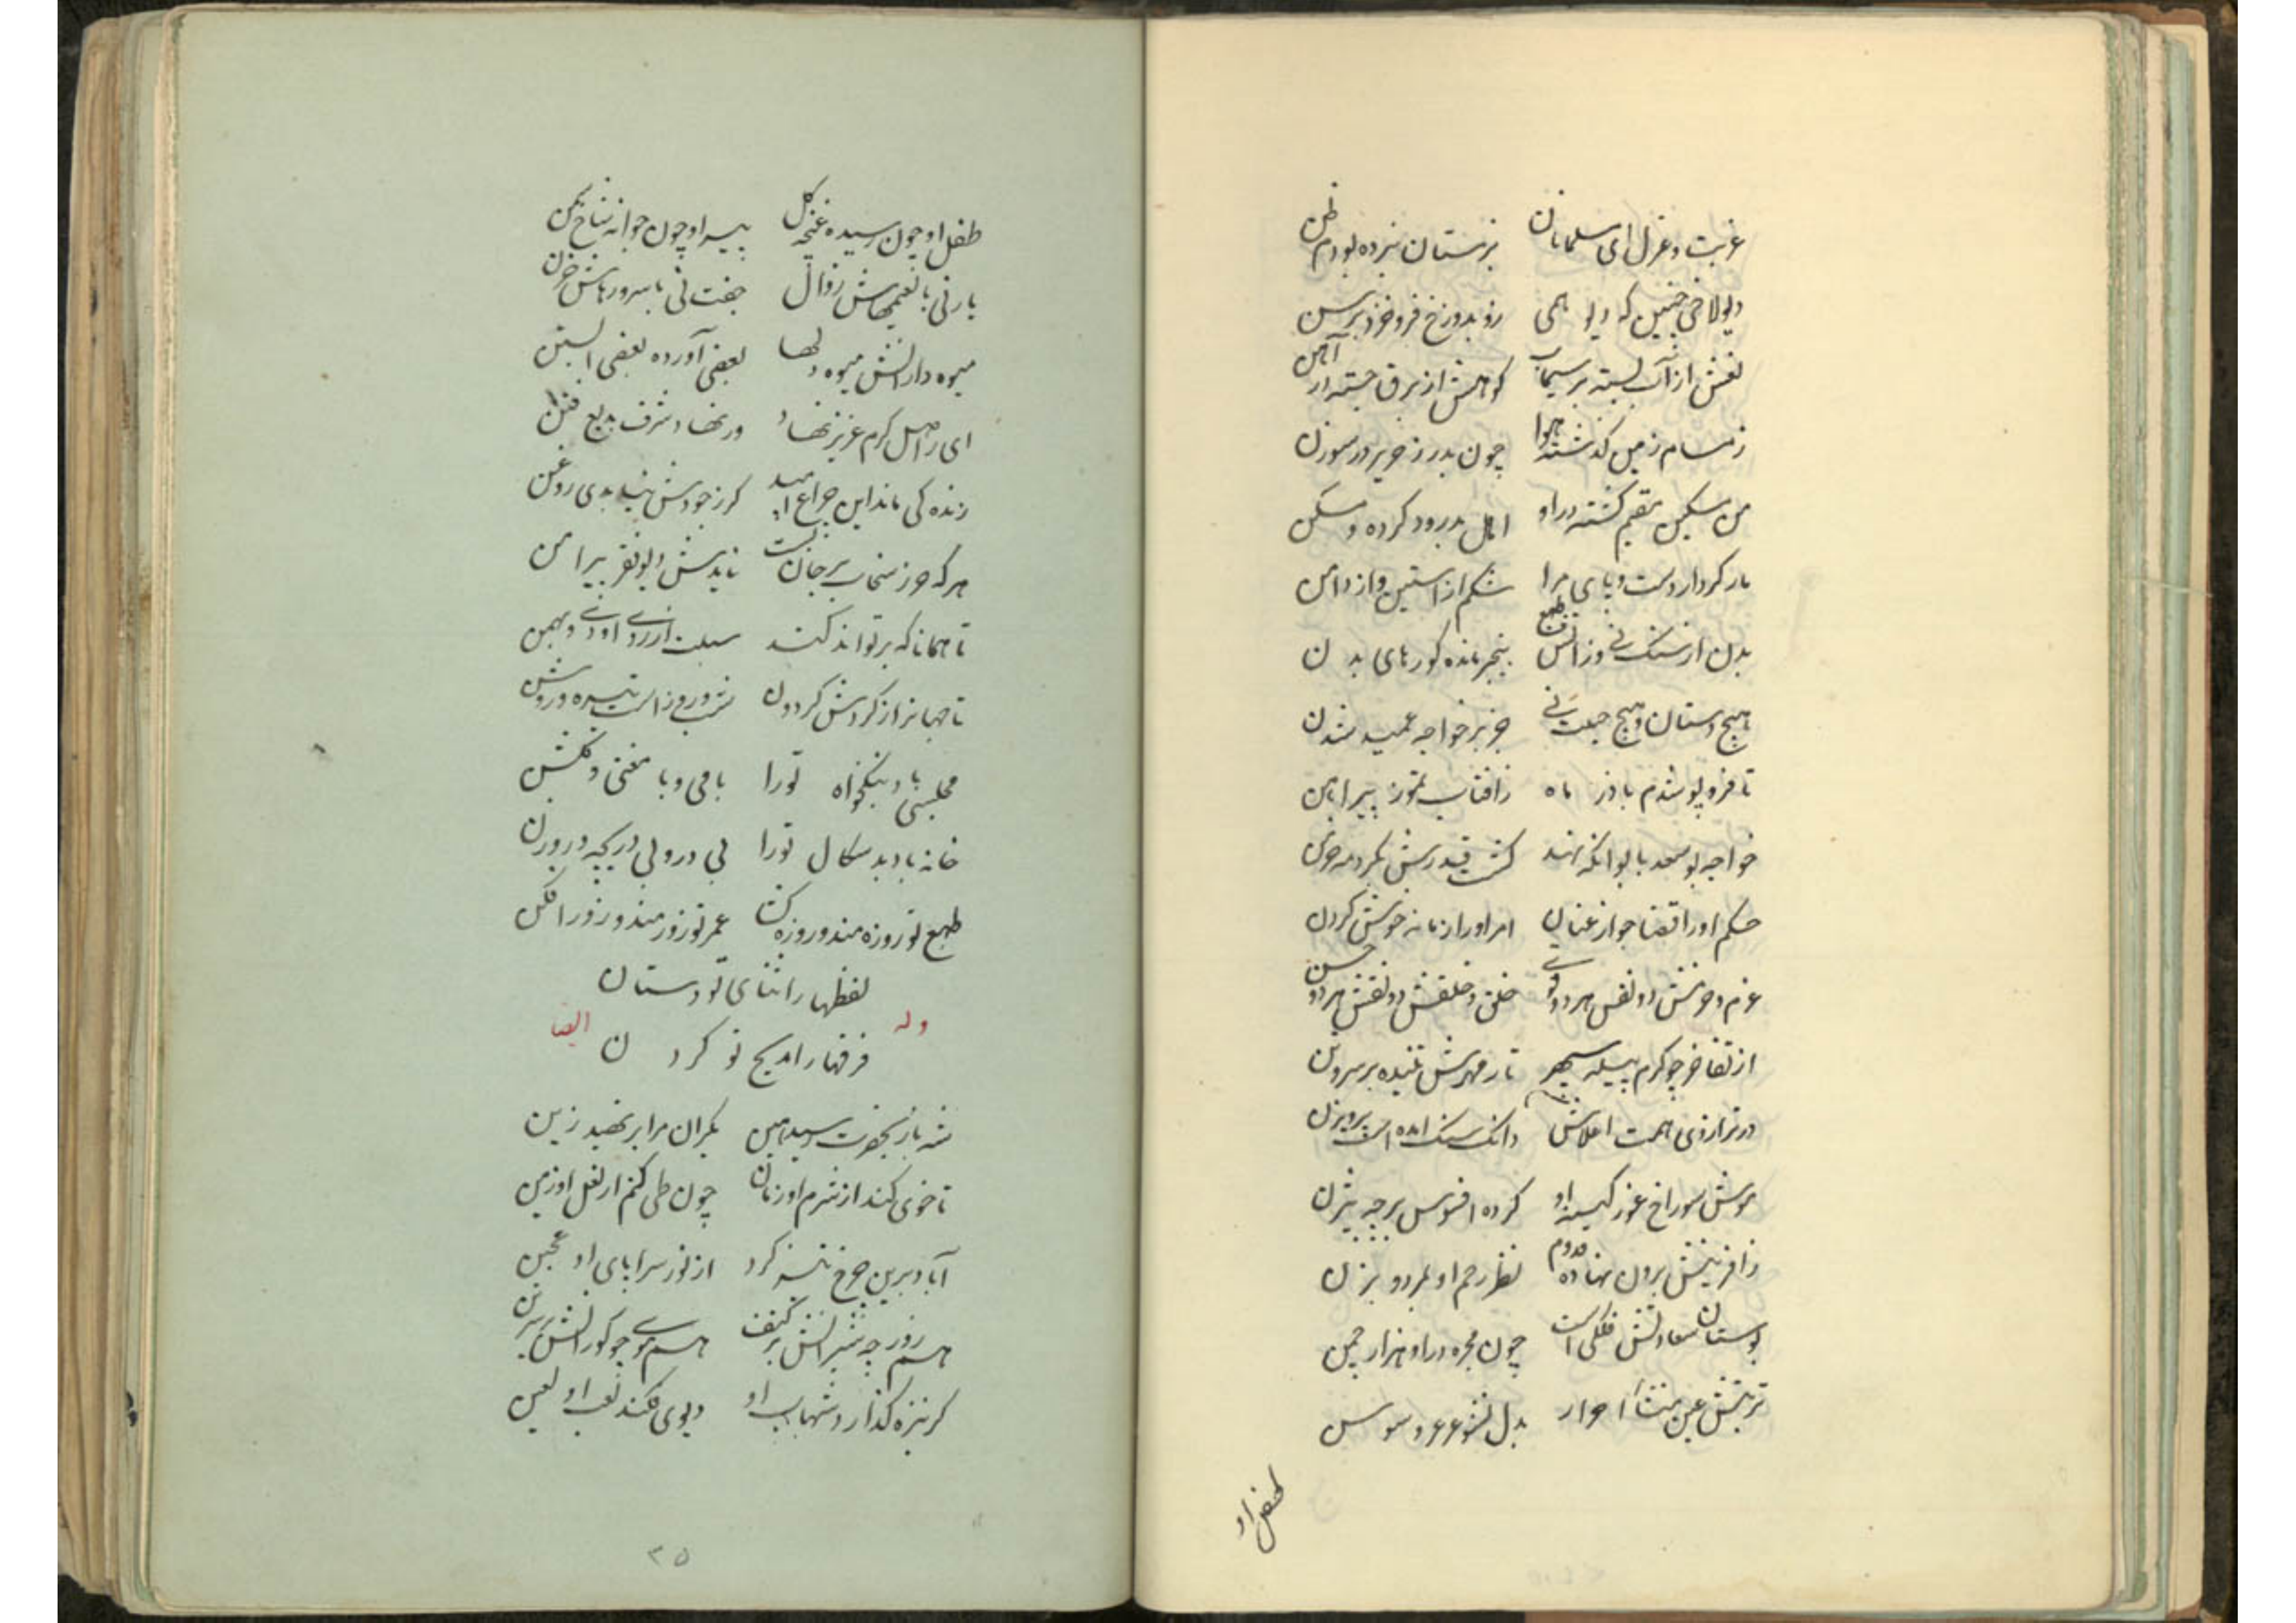 غربت و عزل ای مسلمانان بزمستان نبرده بودم ظن
دیولاخی چنین که دیو همی زو بدوزخ فروخزد برسن
نقش از آب بسته بر سیماب کوهش از برق جسته در آهن
ز مسام زمین گذشته هوا چون بدرز حریر در سوزن
من مسکین مقیم گشته در او اهل بدرود کرده و مسکن
مار کردار دست و پای مرا شکم از آستین و از دامن
بدن از سنگ نی وز آتش طبع بیخبر مانده گورهای بدن
هیچ دستان و هیچ حیلت نی جز بر خواجه عمید شدن
تا فرو پوشدم باذر ماه ز آفتاب تموز پیراهن
خواجه بوسعد بابو آنکه نهند کشت قدرش بگرد مه خرمن
حکم او را قضا جواز عنان امر او را زمانه خوش گردن
عزم و حزمش دو نفس هر دو قوی خلق و خلقش دو نقش هر دو حسن
از تفاخر چو کرم پیله سپهر تار مهرش تنیده بر سر و تن
در ترازوی همت اعلاش دانگ سنگ آمده است پرویزن
موش سوراخ غور کینه او کرده افسوس بر چه بیژن
ز آفرینش برون نهاده قدوم نظر رحم او بمرد و بزن
بوستان سعادتش فلکی است چون مجره در او هزار چمن
تربتش عین منشأ احرار بدل نشو عرعر و سوسن
طفل او
طفل او چون رسیده غنچه گل پیر او چون جوانه شاخ سمن
یار نی با نعیمهاش زوال جفت نی با سرورهاش حزن
میوه دارانش میوه دلها بعضی آورده بعضی آبستن
ای ز اصل کرم عزیز نهاد ور نهاد شرف بدیع فنن
زنده کی ماند این چراغ امید گر ز جودش نیابدی روغن
هر که حرز سخات بر جان بست نایدش دیو فقر پیرامن
تا همانا که بر تواند کند سبلت آرزوی او دی و بهمن
تا جهانرا ز گردش گردون شب و روز است تیره و روشن
مجلسی باد نیکخواه تو را با می و با مغنی و گلشن
خانه باد بد سگال تو را بی در و بی دریچه و روزن
طبع تو روزه مند و روزه گشا عمر تو زورمند و زور افکن
لفظها را ثنای تو دستان
فرقها را مدیح تو گردن
وله ایضا
شه باز بحضرت رسید هین یکران مرا بر نهید زین
تا خوی کند از شرم او زمان چون طی کنم از نعل او زمین
آباد برین چرخ تیز گرد از نوز سراپای او عجین
هم روز چه شیرانش بر کتف هم موی چو گورانش بر سرین
گر نیزه گذارد شهاب او دیوی فکند لعب او لعین
۳۵